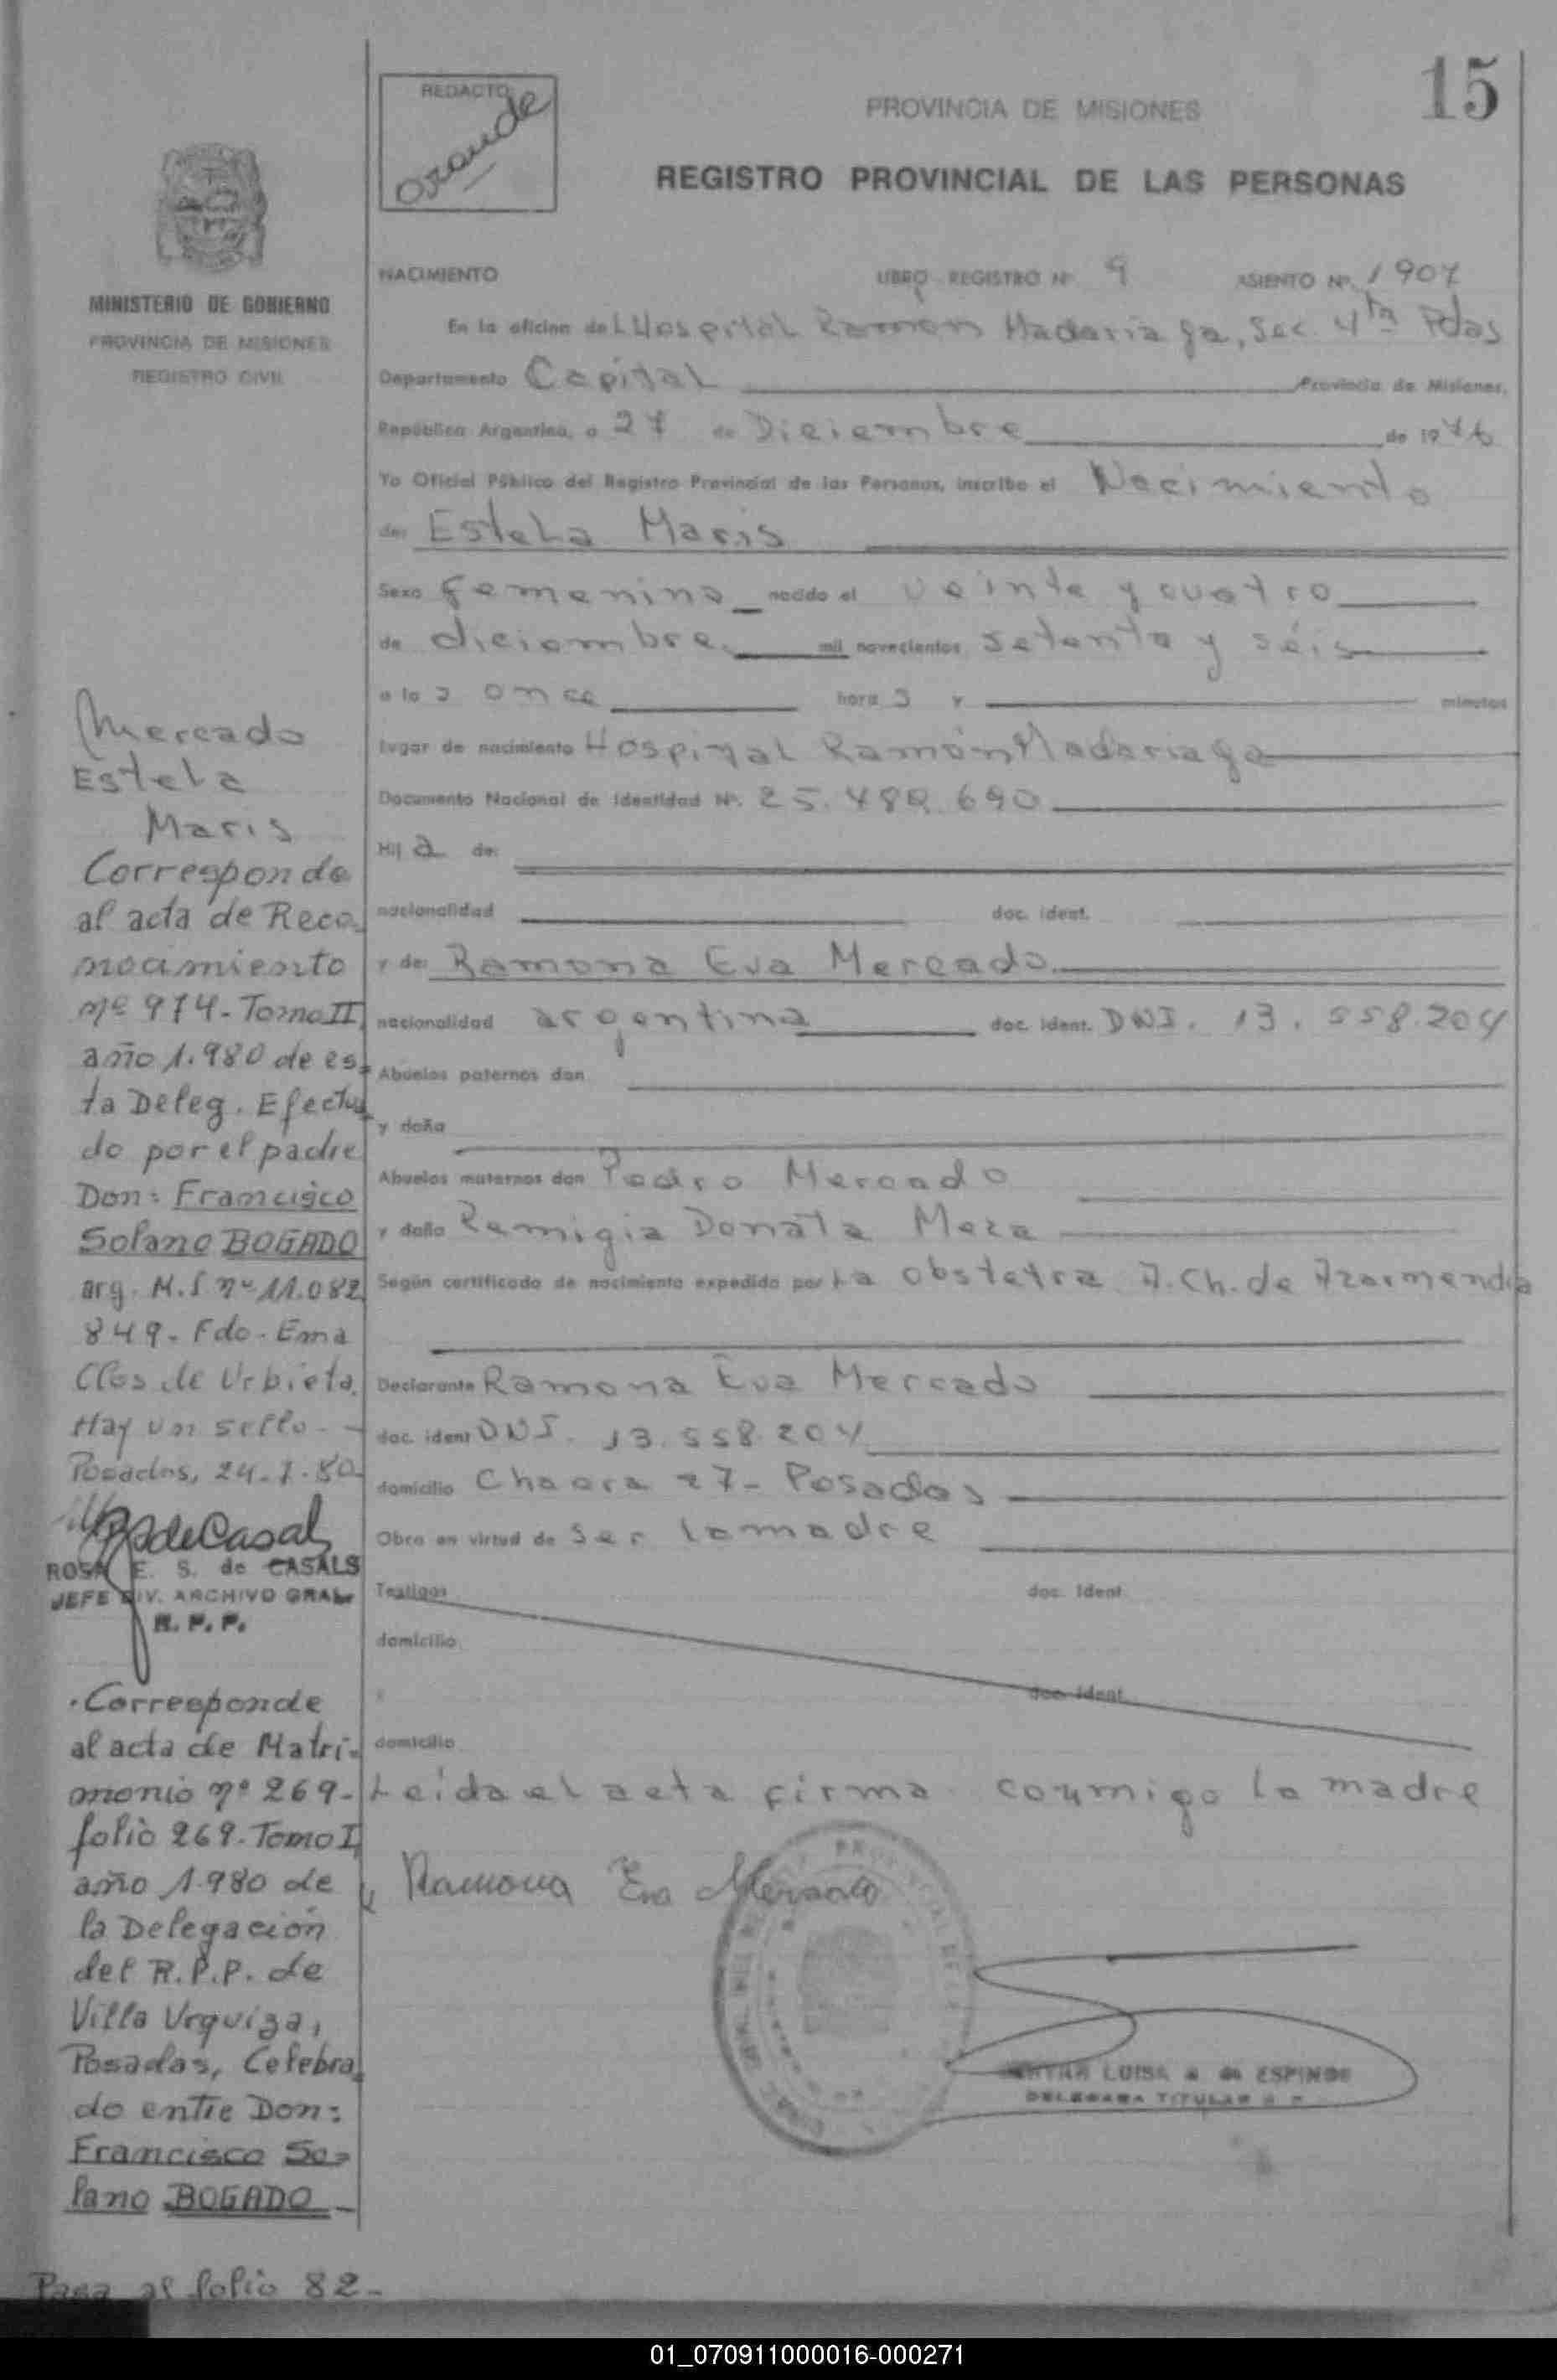 15
REDACTO
PROVINCIA DE MISIONES
REGISTRO PROVINCIAL DE LAS PERSONAS
MINISTERIO DE GOBIERNO
PROVINCIA DE MISIONES
REGISTRO CIVIL
NACIMIENTO LIBRO REGISTRO Nº 9 ASIENTO Nº 1907
En la oficina del Hospital Ramon Madariaga, Sec. 4ta Pdas
Departamento Capital Provincia de Misiones,
República Argentina, a 27 de Diciembre de 1976
Yo Oficial Público del Registro Provincial de las Personas, inscribo el Nacimiento
de: Estela Maris
Sexo femenino nacido el veinte y cuatro
de diciembre mil novecientos setenta y séis
a las once horas y minutos
lugar de nacimiento Hospital Ramón Madariaga
Documento Nacional de Identidad Nº. 25.480.690
Hija de:
nacionalidad doc. ident.
y de: Ramona Eva Mercado
nacionalidad argentina doc. ident. DNI. 13.558.204
Abuelos paternos don
y doña
Abuelos maternos don Pedro Mercado
y doña Remigia Donata Meza
Según certificado de nacimiento expedido por La obstetra A. Ch. de Azarmendia
Declarante Ramona Eva Mercado
doc. ident DNI. 13.558.204
domicilio Chacra 27- Posadas
Obra en virtud de ser la madre
Testigos doc. Ident.
domicilio
y doc. Ident.
domicilio
Leida el acta firma conmigo la madre
Ramona Eva Mercado
LUISA de ESPINDE
DELEGADA TITULAR
Mercado
Estela
Maris
Corresponde
al acta de Reco-
nocimiento
nº 974- Tomo II
año 1.980 de es-
ta Deleg. Efectua
do por el padre
Don: Francisco
Solano BOGADO
arg. M.I nº 11.082
849- Fdo- Ema
Clos de Urbieta.
Hay un sello-
Posadas, 24-7-80
deCasal
ROSA E. S. de CASALS
JEFE DIV. ARCHIVO GRAL
R. P. P.
Corresponde
al acta de Matri-
monio nº 269-
folio 269-Tomo I
año 1.980 de
la Delegación
del R.P.P. de
Villa Urquiza,
Posadas, Celebra
do entre Don:
Francisco So-
lano BOGADO-
Pasa al folio 82-
01_070911000016-000271